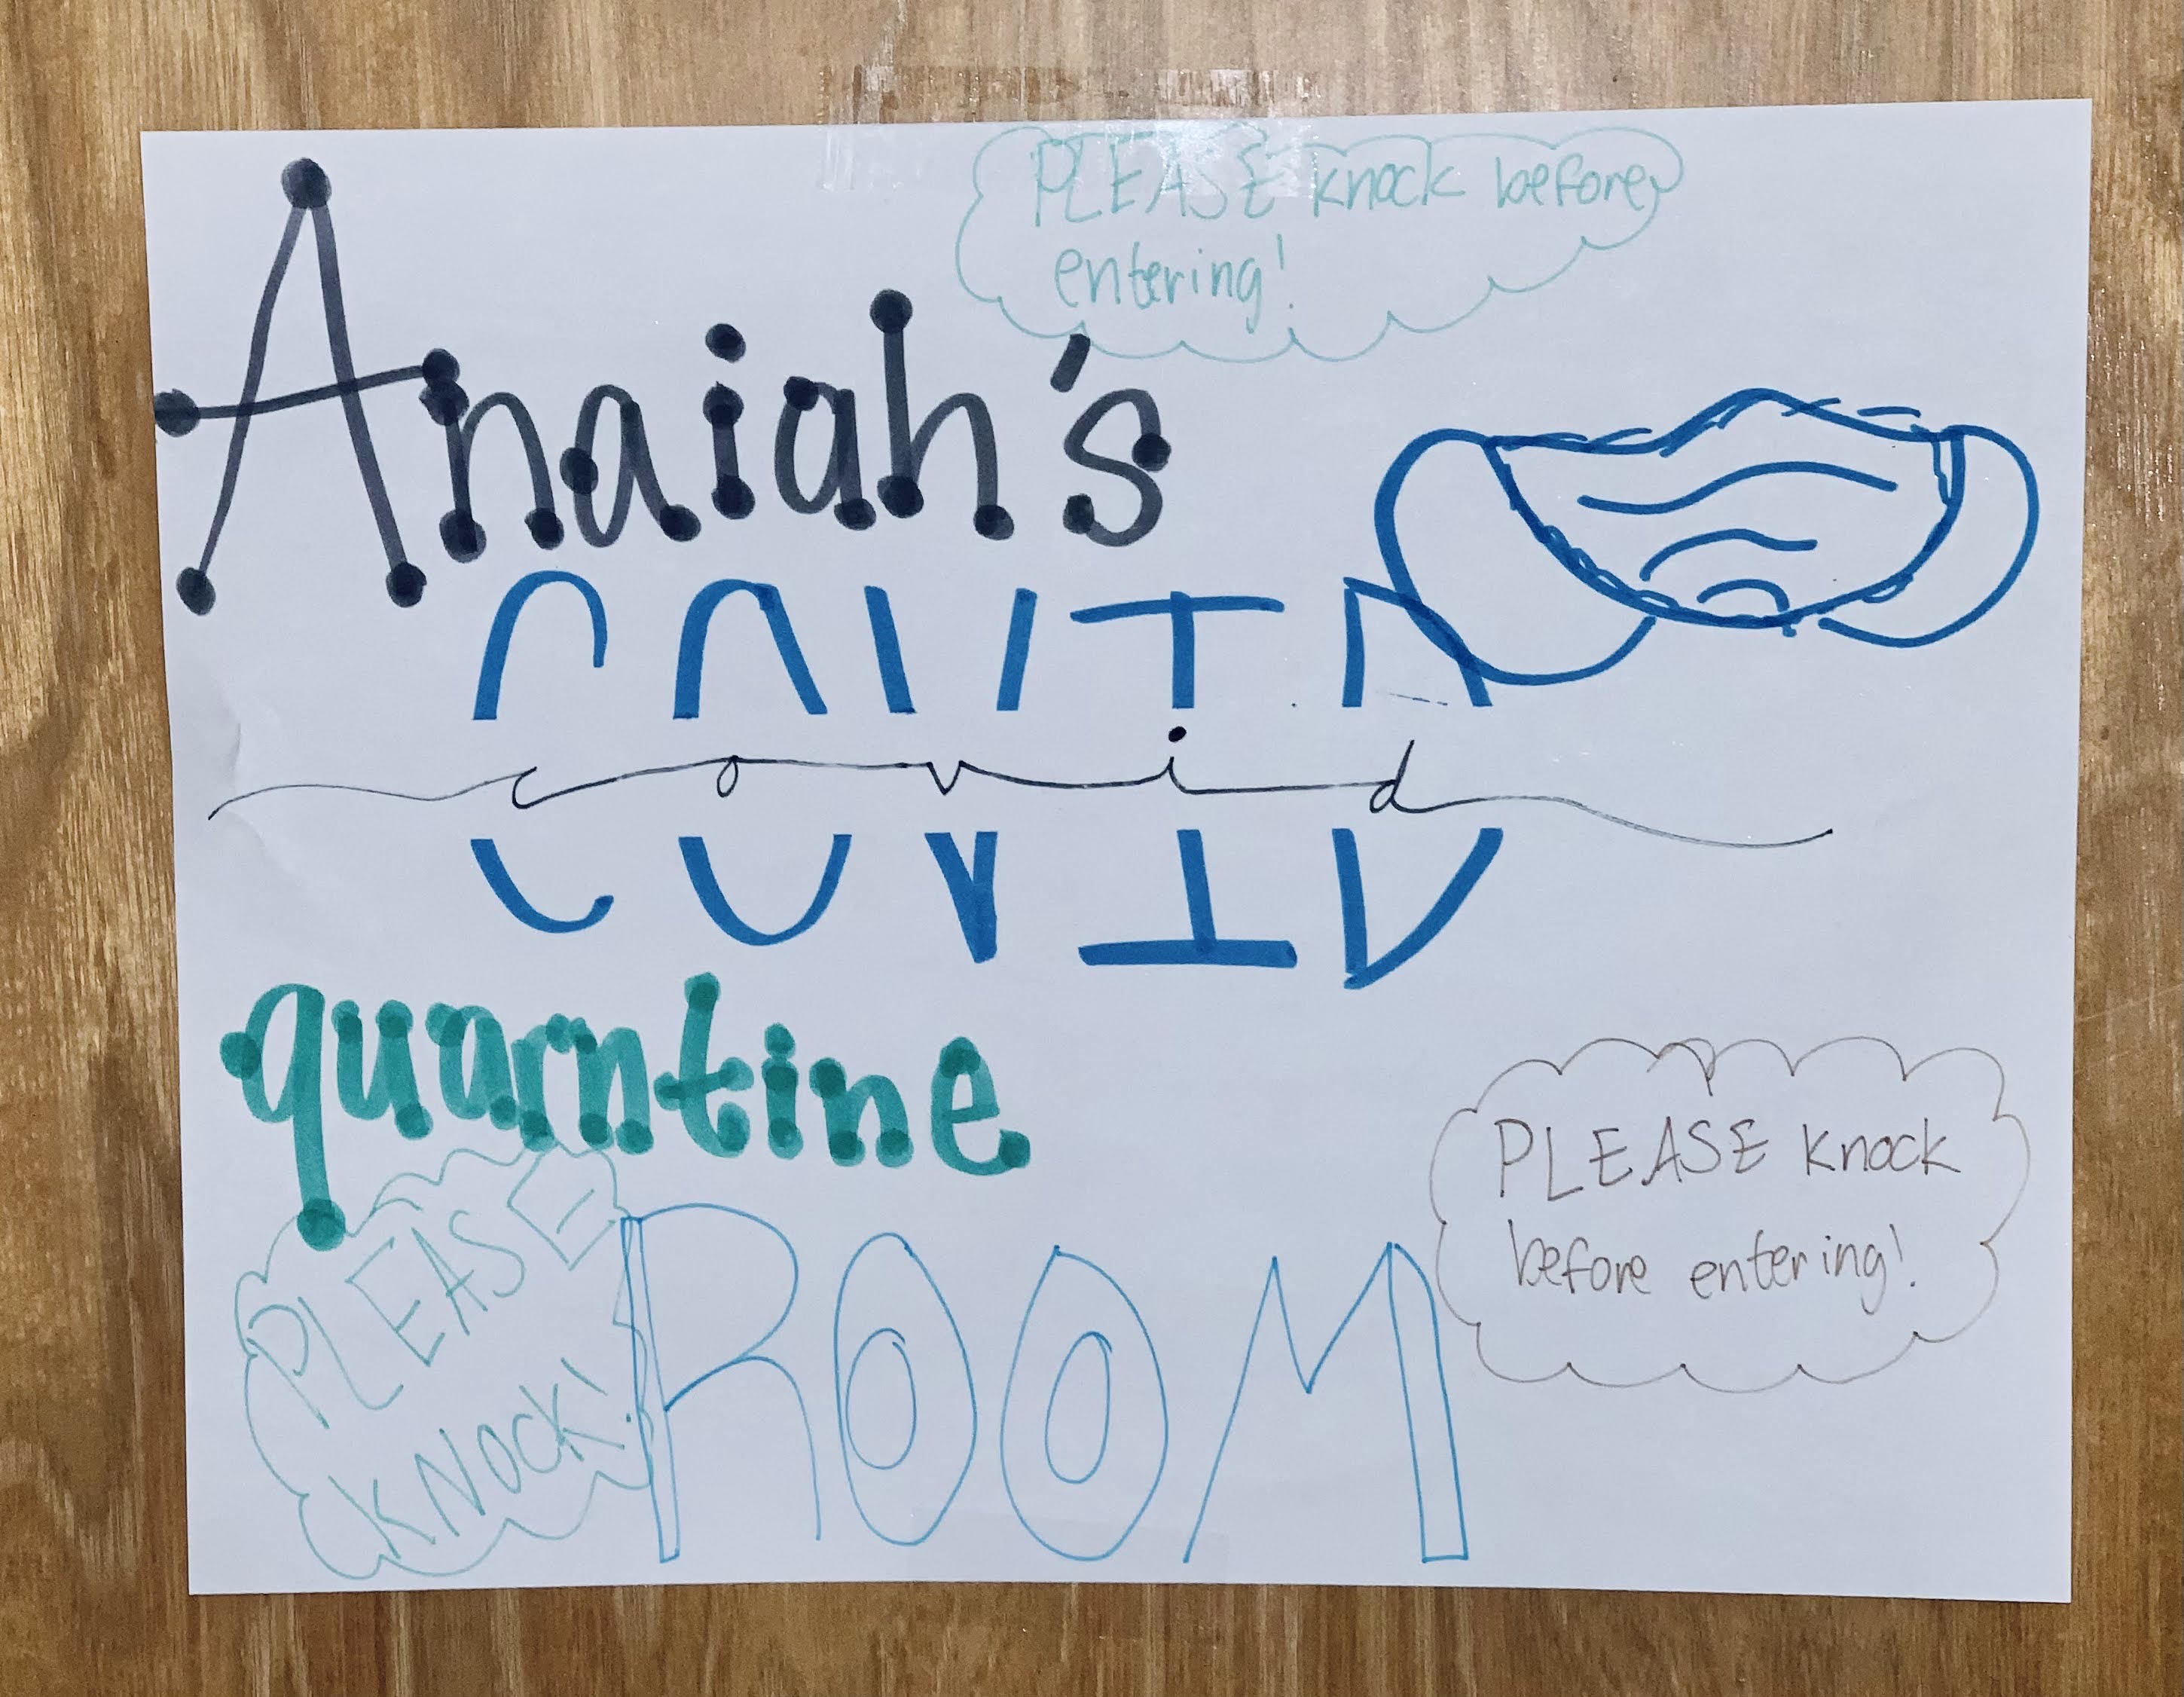 PLEASE knock before
entering!
Anaiah's
COVID
covid
quarntine
PLEASE
KNOCK!
ROOM
PLEASE knock
before entering!